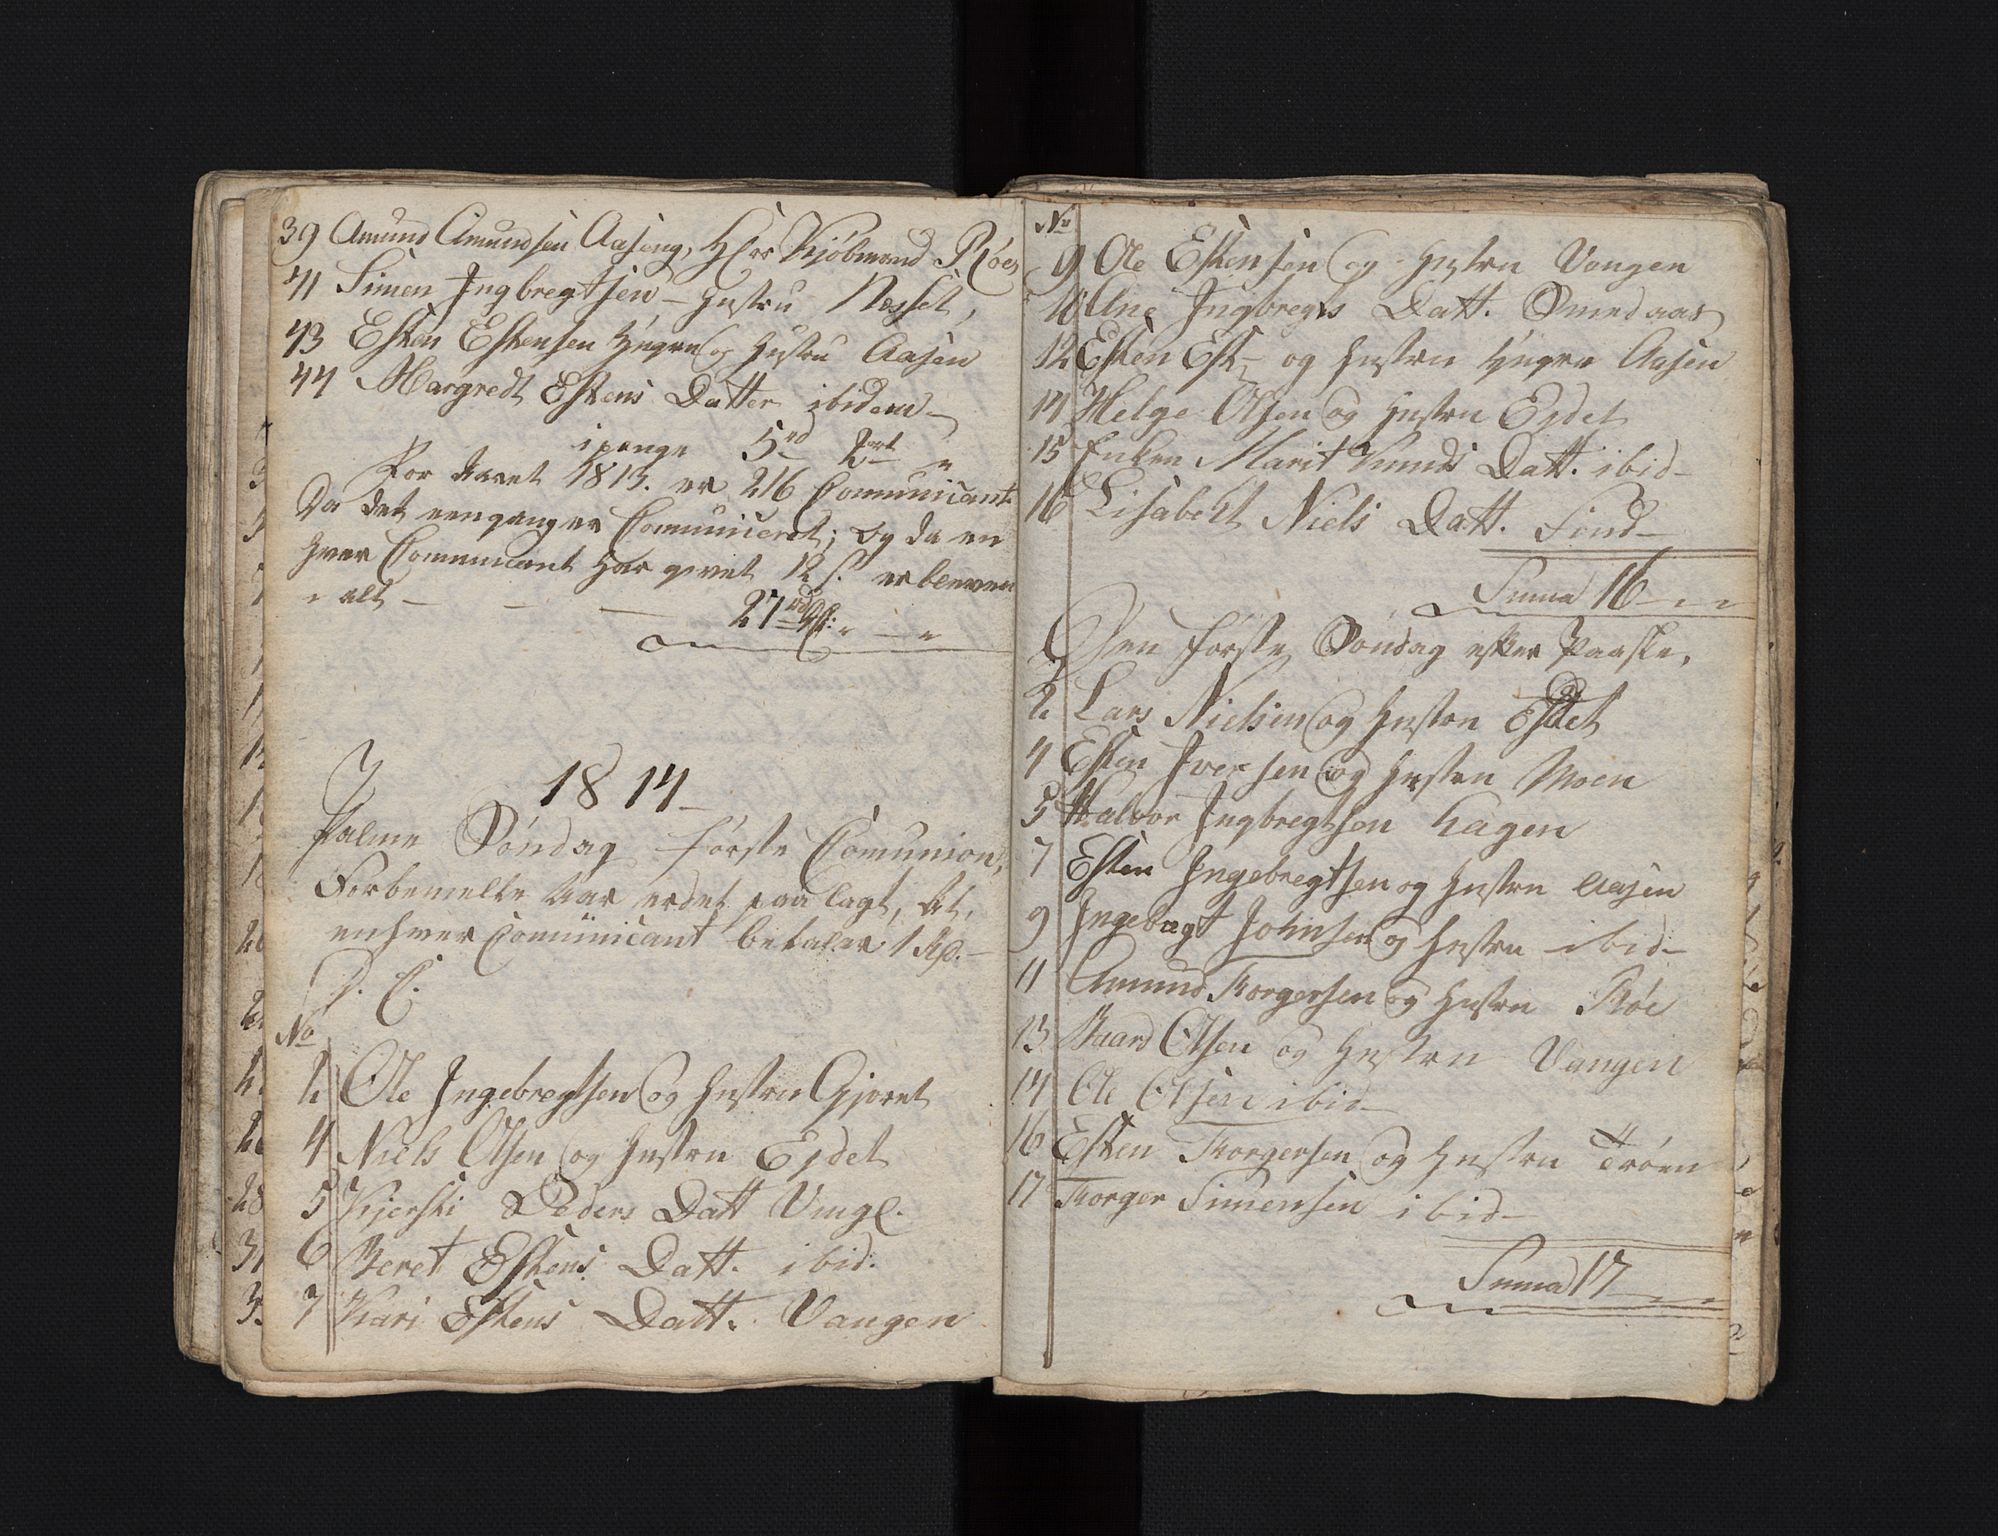 39 Amund Amundsen Aaseng, Hos Kjöbmand Röe,
41 Simen Ingbregtsen - Hustru Næsset,
43 Esten Estensen Yngre og Hustru Aasen
44 Margredt Estens Datter ibidem -
ipenge 5 rd 2 rt "
For Aaret 1813. er 216 Comunicant.
Da det eengang er Comuniceret; og da en
hver Communicant har givet 12 s. er bleven
i alt - - - 27 rd " - "
1814
Palme Söndag förste Comunion,
Forbemelte Aar er det paalagt, At,
enhver Comunicant betaler 1
No
2 Ole Ingebregtsen og Hustru Gjoret
4 Niels Olsen og Hustru Ejdet
5 Kjersti Peders Datt Vingl.
6 Beret Estens Datt. ibid.
7 Kari Estens Datt. Vangen
No
9 Ole Estensen og Hustru Vangen
10 Ane Ingbregts Datt. Smedaas
12 Esten Est- og Hustru Yngre Aasen
14 Helge Olsen og Hustru Ejdet
15 Enken Marit Knuds Datt. ibid-
16 Lisabeht Niels Datt. Sund-
Suma 16 - " "
Den förste Söndag efter Paaske.
2 Lars Nielsen og Hustru Eidet
4 Esten Iversen og Hustru Moen
5 Halvor Ingbregtsen Hagen
7 Esten Ingebregtsen og Hustru Aasen
9 Ingebregt Johnsen og Hustru ibid-
11 Amund Torgersen og Hustru Röe
13 Baard Olsen og Hustru Vangen
14 Ole Olsen ibid-
16 Esten Torgersen og Hustru Tröen
17 Torger Simensen ibid-
Suma 17 - " "